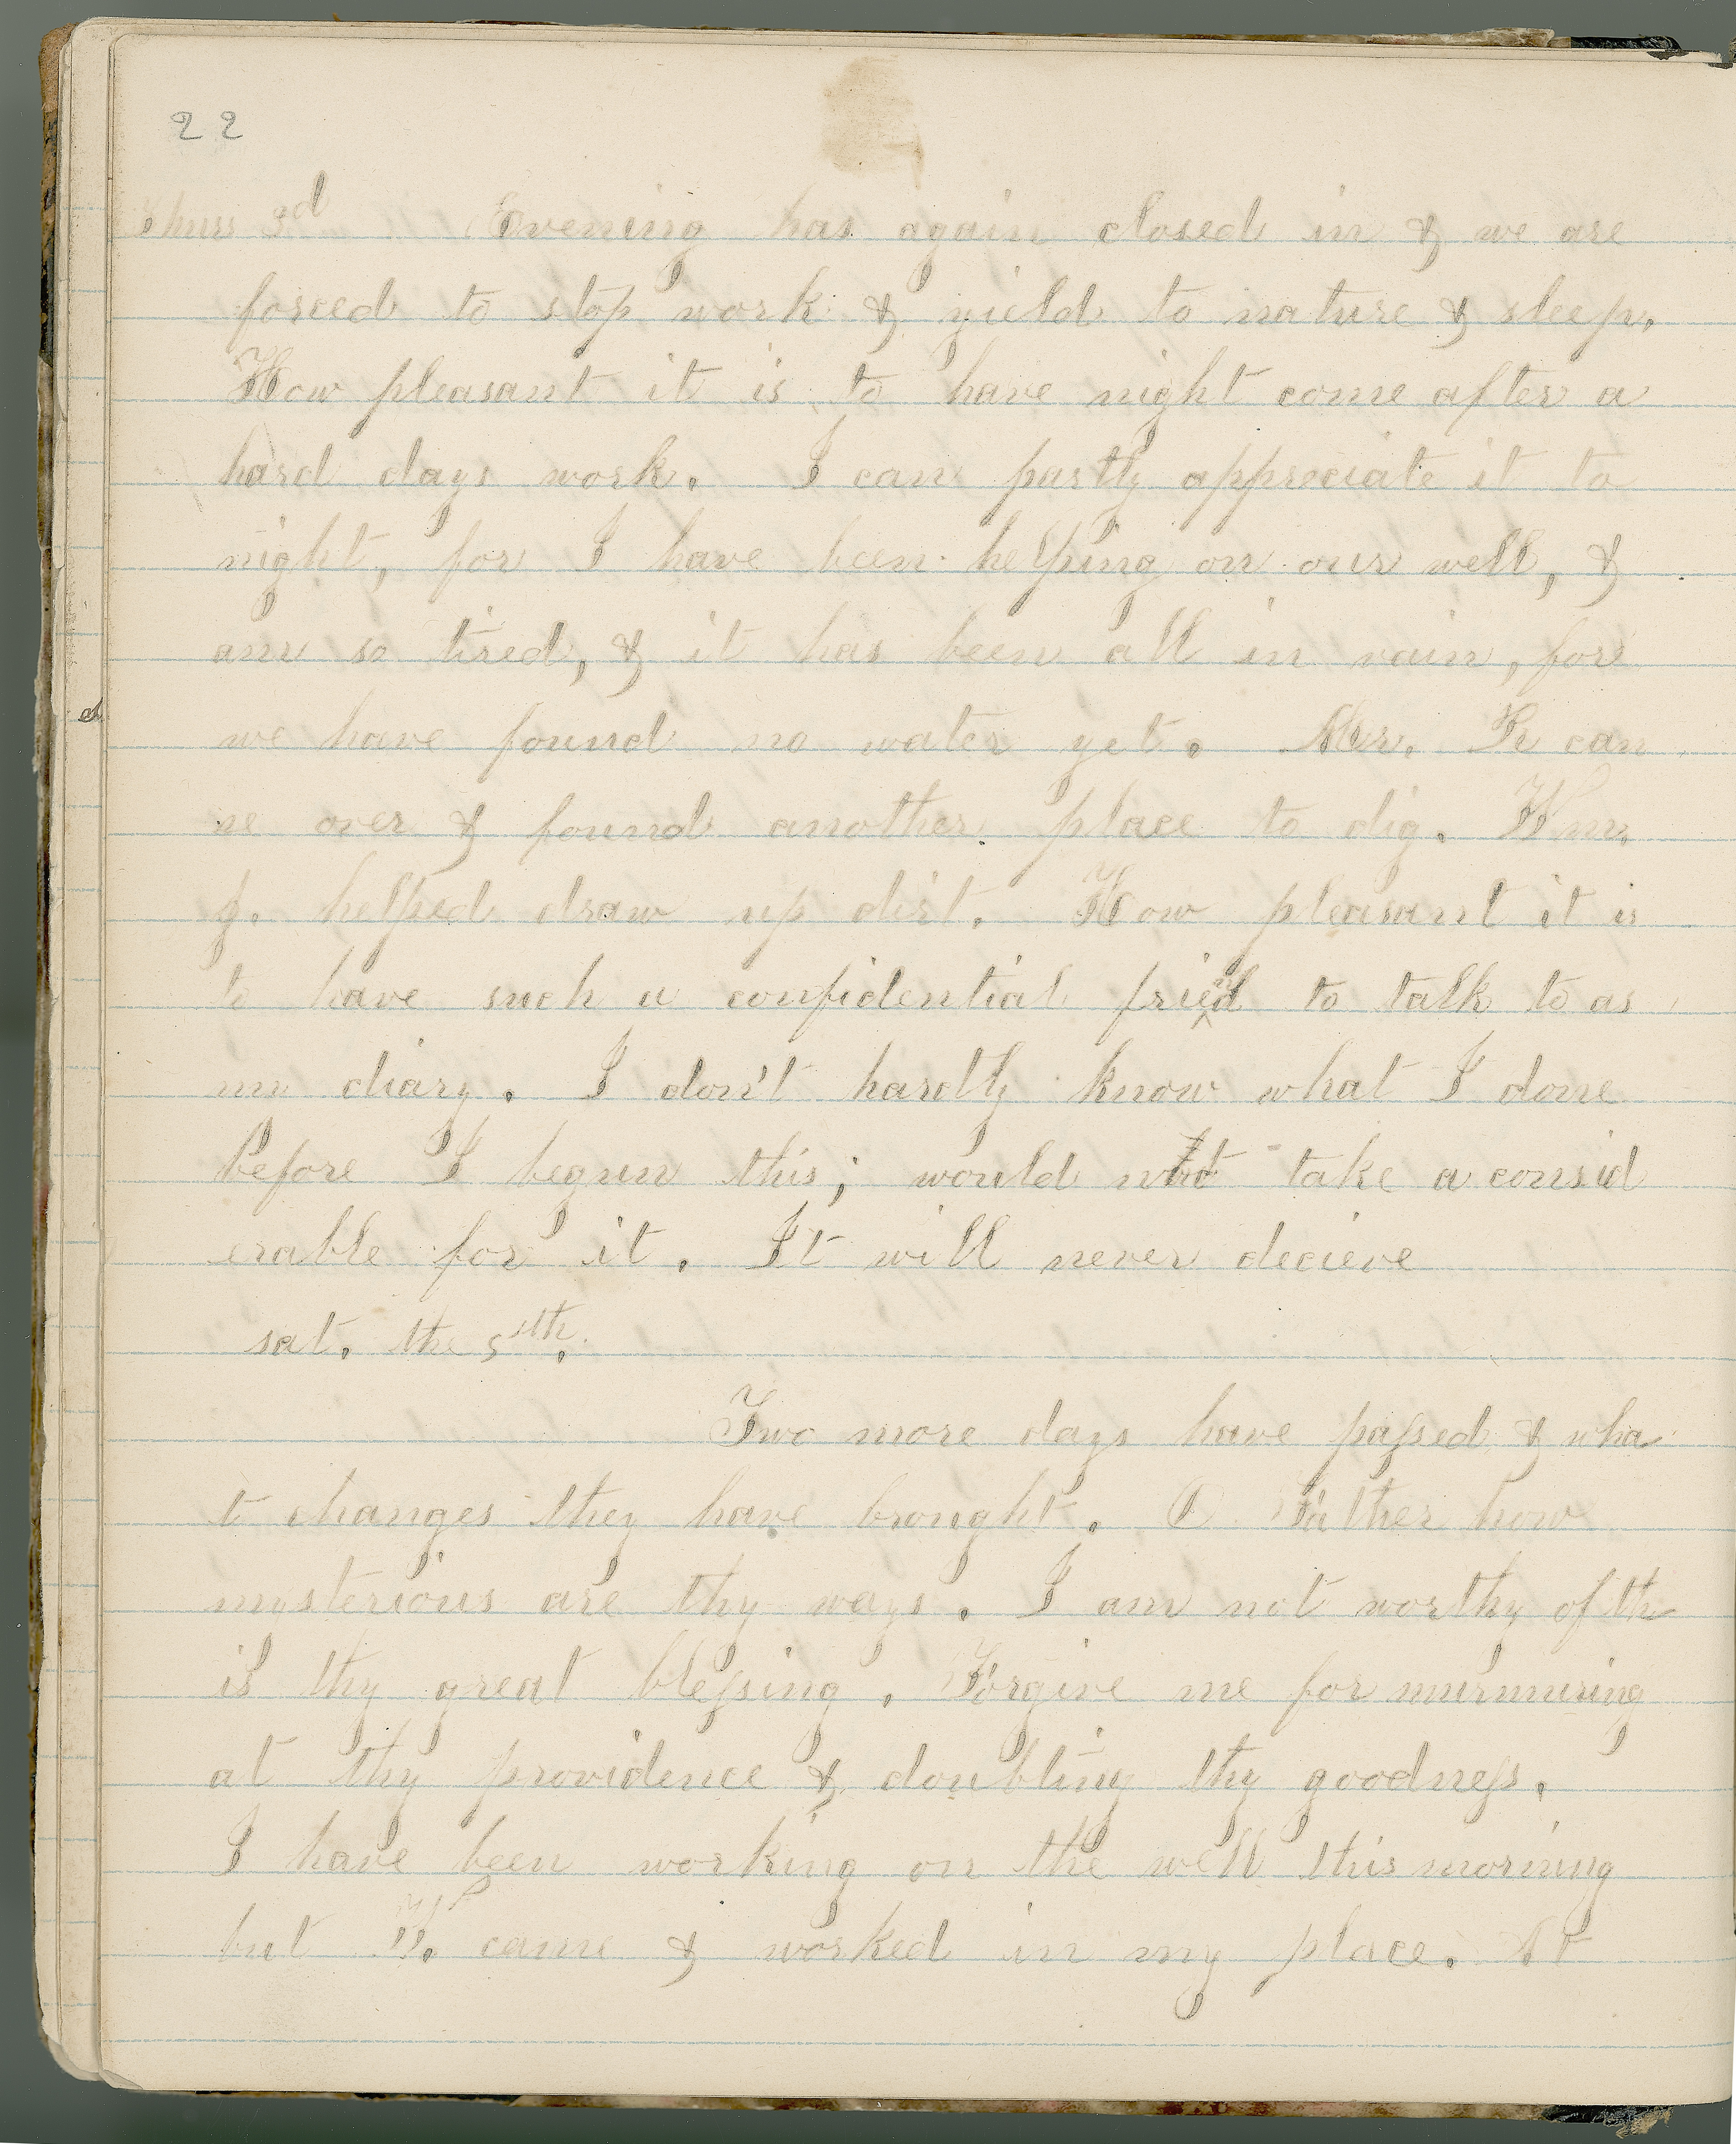 22
Thurs 3d Evening has again closed in & we are
forced to stop work & yield to nature & sleep.
How pleasant it is to have night come after a
hard days work. I can partly appreciate it to
night, for I have been helping on our well, &
am so tired, & it has been all in vain, for
we have found no water yet. Mr. can
ne over & found another place to dig. Wm.
J. helped draw up dirt. How pleasant it is
to have such a confidential friend to talk to as
my diary. I don't hardly know what I done
before I begun this; would not take a consid
erable for it. It will never decieve
sat. the 5th.
Two more days have passed & wha
t changes they have brought. O Father how
mysterious are thy ways. I am not worthy of th
is thy great blessing. Forgive me for murmuring
at thy providence & doubting thy goodness.
I have been working on the well this morning
but came & worked in my place. At